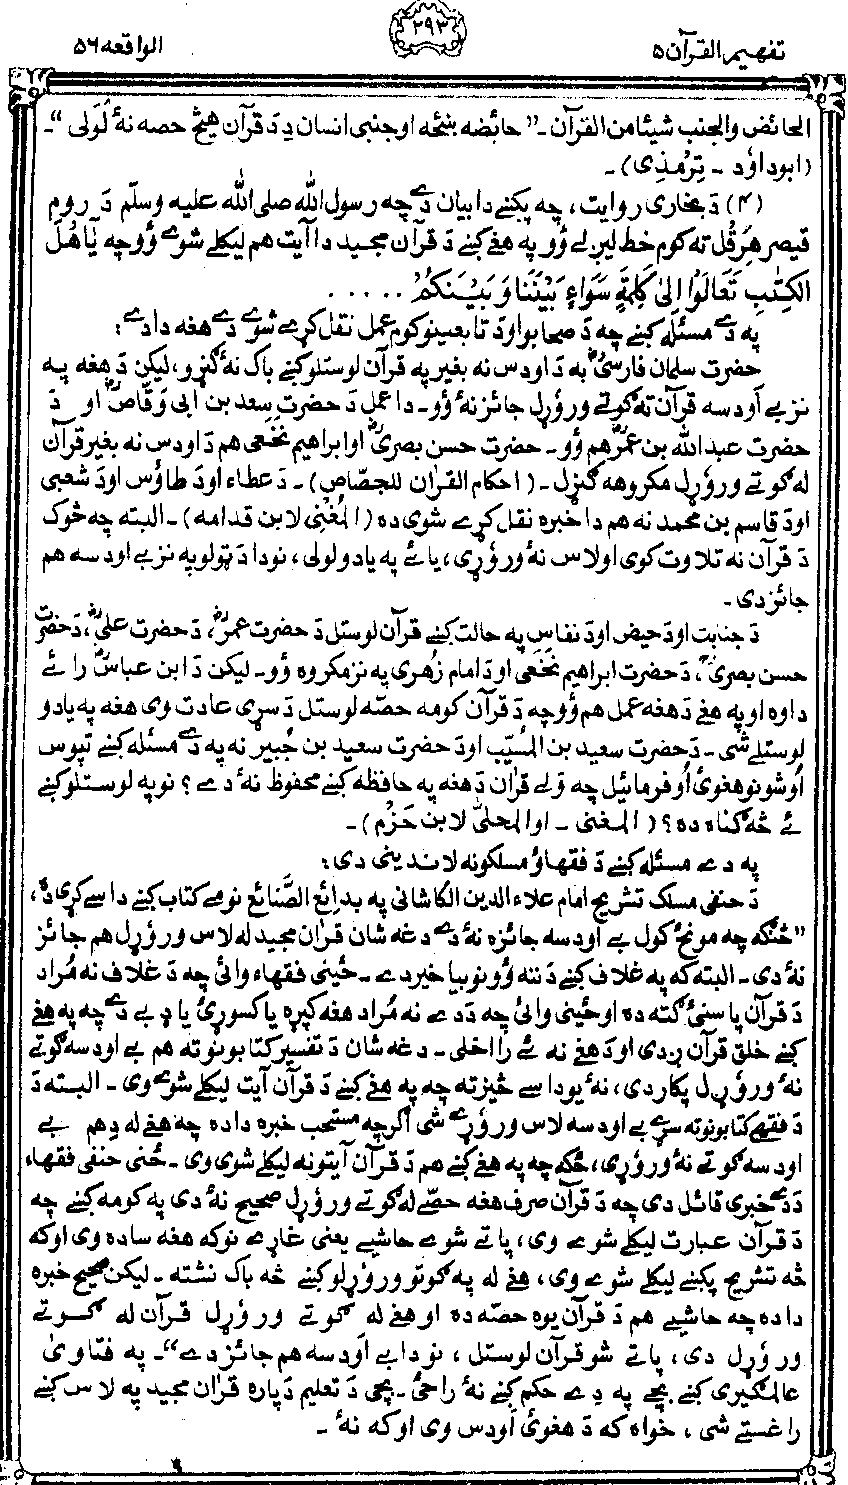 تفهیم القرآن ۵
۲۹۳
الواقعه ۵۶
الحائض والجنب شیئا من القرآن ـ" حائضه ښځه او جنبی انسان دِ دَ قرآن هیڅ حصه نهٔ لَولی"۔
(ابوداوٗد ۔ ترمذی)۔
(۴) دَ بخاری روایت، چه پکښے دا بیان دے چه رسول الله صلی الله علیه وسلّم دَ روم
قیصر هِرَقُل ته کوم خط لیږلے ؤو په هغے کښے دَ قرآن مجید دا آیت هم لیکلے شوے ؤو چه یٰٓاَهْلَ
الْکِتٰبِ تَعَالَوْا اِلیٰ کَلِمَةٍ سَوَاءٍ بَیْنَنَا وَ بَیْنَکُمْ . . . . . .
په دے مسئله کښے چه دَ صحابو او دَ تابعینو کوم عمل نقل کړے شوے دے هغه دا دے:
حضرت سلمان فارسیؓ به دَ اودس نه بغیر په قرآن لوستلو کښے باک نهٔ ګڼړو، لیکن دَ هغه په
نز بے اودسه قرآن ته ګوتے وروړل جائز نهٔ ؤو۔ دا عمل دَ حضرت سعد بن ابی وقاصؓ او دَ
حضرت عبدالله بن عمرؓ هم ؤو۔ حضرت حسن بصریؒ او ابراهیم نخعی هم دَ اودس نه بغیر قرآن
له ګوتے وروړل مکروهه ګڼړل۔ (احکام القراٰن للجصّاص)۔ دَ عطاء او دَ طاؤس او دَ شعبی
او دَ قاسم بن محمد نه هم دا خبره نقل کړے شوی ده (المُغنِی لابن قدامه)۔ البته چه څوک
دَ قرآن نه تلاوت کوی او لاس نهٔ وروړی، یا ئے په یادو لولی، نو دا دَ ټولو په نز بے اودسه هم
جائز دی۔
دَ جنابت او دَ حیض او دَ نفاس په حالت کښے قرآن لوستل دَ حضرت عمرؓ، دَ حضرت علیؓ، دَ حضرت
حسن بصریؒ، دَ حضرت ابراهیم نخعی او دَ امام زهری په نز مکروه ؤو۔ لیکن دَ ابن عباسؓ رائے
داوه او په هغے دَ هغه عمل هم ؤو چه دَ قرآن کومه حصّه لوستل دَ سړی عادت وی هغه په یادو
لوستلے شی۔ دَ حضرت سعید بن المُسَیّب او دَ حضرت سعید بن جُبیر نه په دے مسئله کښے تپوس
اوشو نو هغوئ اوفرمائیل چه ولے قراٰن دَ هغه په حافظه کښے محفوظ نهٔ دے؟ نو په لوستلو کښے
ئے څه ګناه ده؟ (المغنی ۔ او المحلیٰ لابن حَزْم)۔
په دے مسئله کښے دَ فقهاؤ مسلکونه لاندینی دی:
دَ حنفی مسلک تشریح امام علاءالدین الکاشانی په بدائع الصَّنائع نومے کتاب کښے داسے کړی ده،
"څنګه چه مونځ کول بے اودسه جائزه نهٔ دے دغه شان قراٰن مجید له لاس وروړل هم جائز
نهٔ دی۔ البته که په غلاف کښے دننه ؤو نو بیا خیر دے۔ ځینی فقهاء وائی چه دَ غلاف نه مُراد
دَ قرآن پاسنئ ګته ده او ځینی وائی چه دَ دے نه مُراد هغه کپړه یا کسوړئ یا ډبے دے چه په هغے
کښے خلق قرآن ږدی او دَ هغے نه ئے رااخلی۔ دغه شان دَ تفسیر کتابونو ته هم بے اودسه ګوتے
نهٔ وروړل پکار دی، نهٔ یو داسے څیز ته چه په هغے کښے دَ قرآن آیت لیکلے شوے وی۔ البته دَ
دَ فقهے کتابونو ته سړے بے اودسه لاس وروړے شی اګرچه مستحب خبره دا ده چه هغے له دِ هم بے
اودسه ګوتے نهٔ وروړی، ځکه چه په هغے کښے هم دَ قرآن آیتونه لیکلے شوی وی۔ ځنی حنفی فقهاء
دَ دے خبری قائل دی چه دَ قرآن صرف هغه حصّے له ګوتے وروړل صحیح نهٔ دی په کومه کښے چه
دَ قرآن عبارت لیکلے شوے وی، پاتے شوے حاشیے یعنی غاړے نو که هغه ساده وی او که
څه تشریح پکښے لیکلے شوے وی، هغے له په ګوتو وروړلو کښے څه باک نشته۔ لیکن صحیح خبره
دا ده چه حاشیے هم دَ قرآن یوه حصّه ده او هغے له ګوتے وروړل قرآن له ګوتے
وروړل دی، پاتے شو قرآن لوستل، نو دا بے اودسه هم جائز دے"۔ په فتاویٰ
عالمګیری کښے بچے په دے حکم کښے نهٔ راځی۔ بچی دَ تعلیم دَ پاره قراٰن مجید په لاس کښے
راغستے شی، خواه که دَ هغوئ اودس وی او که نهٔ۔